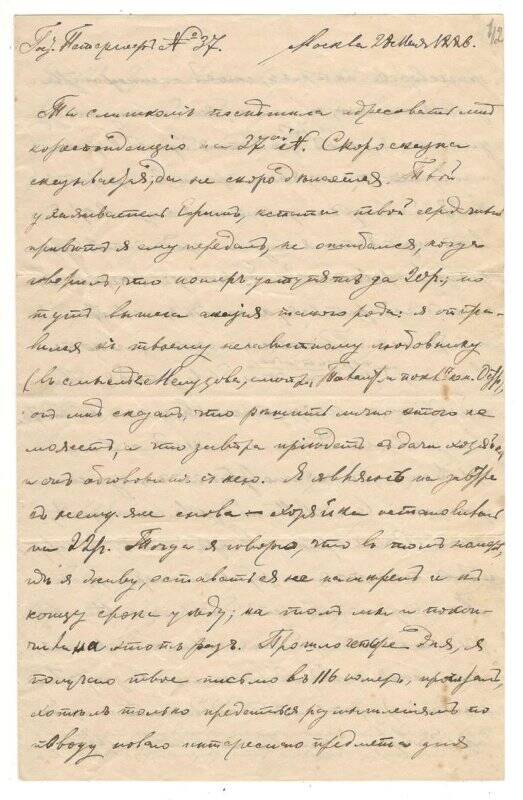 42
Москва 28 Мая 1888.
№ 37.
Ты слишкомъ поспѣшила адресовать мнѣ
корреспонденцію на 37ой №. Скоро сказка
сказывается, да не скоро дѣлается. Твой
Ефимъ, кстати твой сердечный
привѣтъ я ему передалъ, не ошибался, когда
говорилъ, что номеръ уступятъ за 20р.; но
тутъ вышла такого рода: я отпра-
вился къ твоему ненавистному любовнику
(въ смыслѣ
онъ мнѣ сказалъ, что рѣшить лично этого не
можетъ, а что завтра пріѣдетъ съ дачи хозяйка
и онъ обговоритъ съ нею. Я являюсь на завтра
къ нему же снова – хозяйка остановилась
на 22р. Тогда я говорю, что въ томъ номерѣ,
гдѣ я живу, остаться не намѣренъ и къ
концу срока уѣду; на томъ мы и покон-
чили на этотъ разъ. Прошло четыре дня, я
получаю твое письмо въ 116 номерѣ, прочиталъ,
хотѣлъ только предаться размышленіямъ по
поводу новаго интереснаго предмета дня